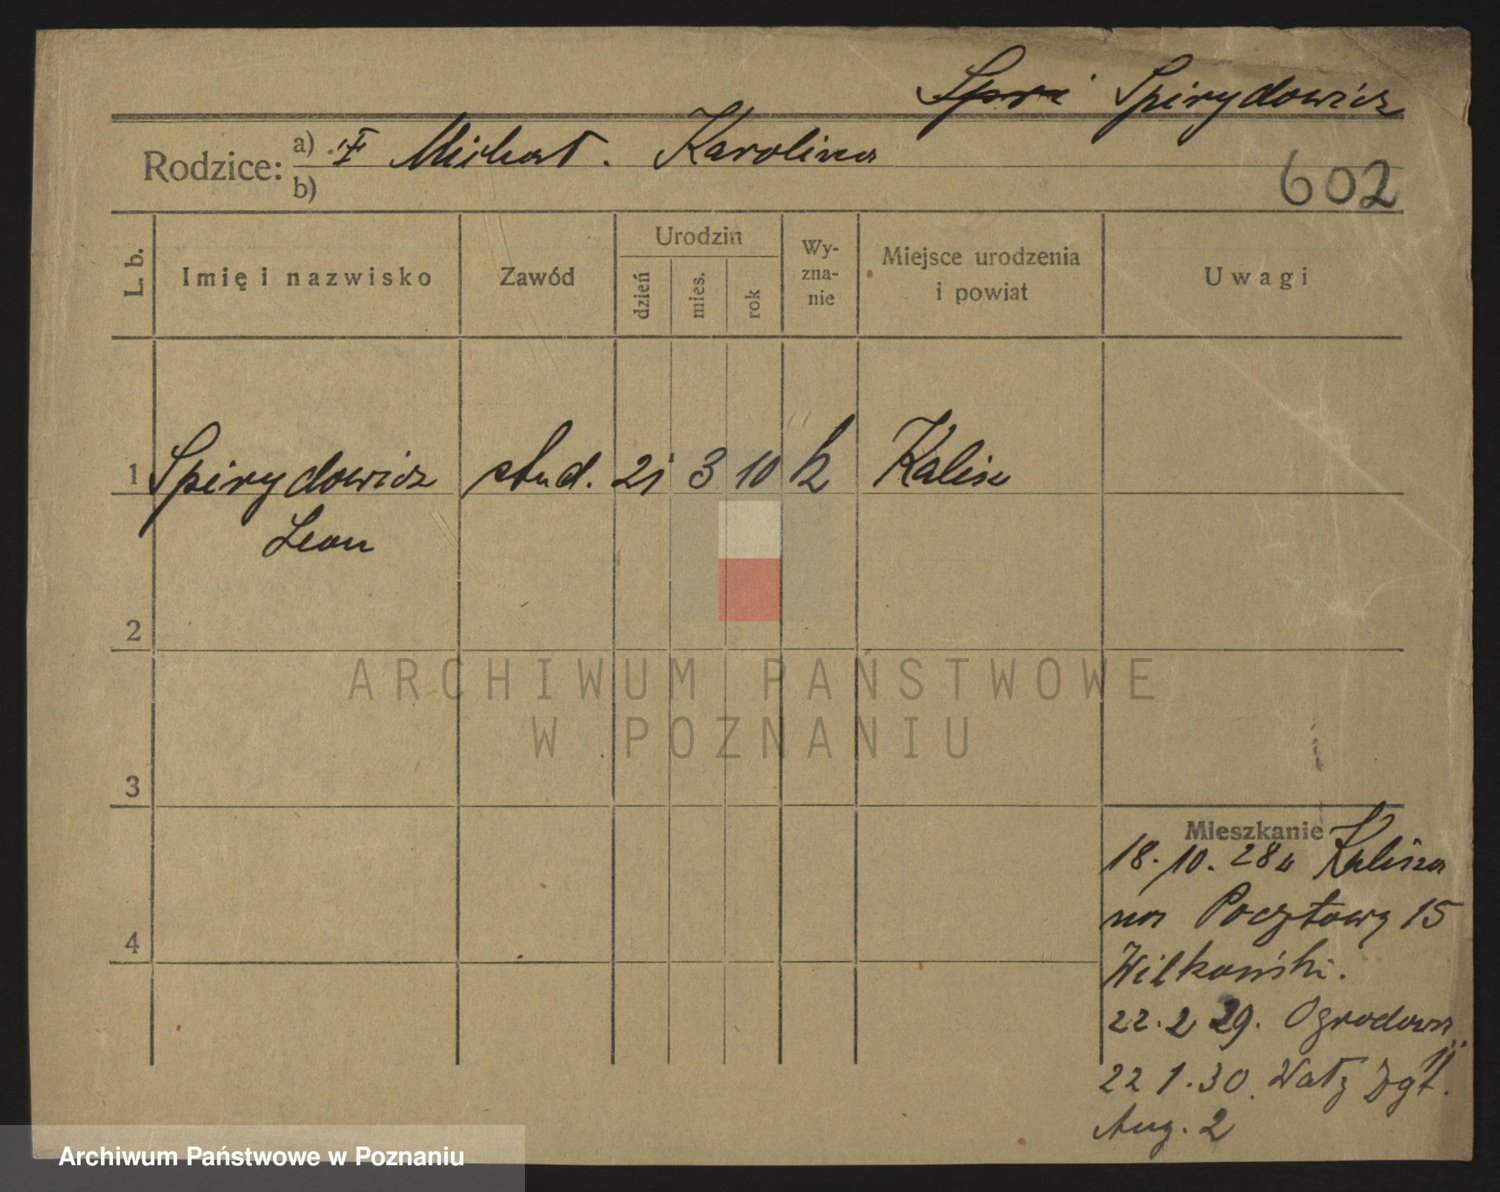 Spirydowicz
Rodzice: a) Michał. Karolina
b)
602
L. b.
Imię i nazwisko
Zawód
Urodzin
dzień
mies.
rok
Wy-
zna-
nie
Miejsce urodzenia
i powiat
Uwagi
1 Spirydowicz stud. 21 3 10 k Kalisz
Leon
2
ARCHIWUM PAŃSTWOWE
W POZNANIU
3
Mieszkanie
18.10.28 Kalisza
na Pocztową 15
Wilkoński.
4
22.2 29. Ogrodowa
11.
22 1.30. Wały Zygt.
Aug. 2
Archiwum Państwowe w Poznaniu